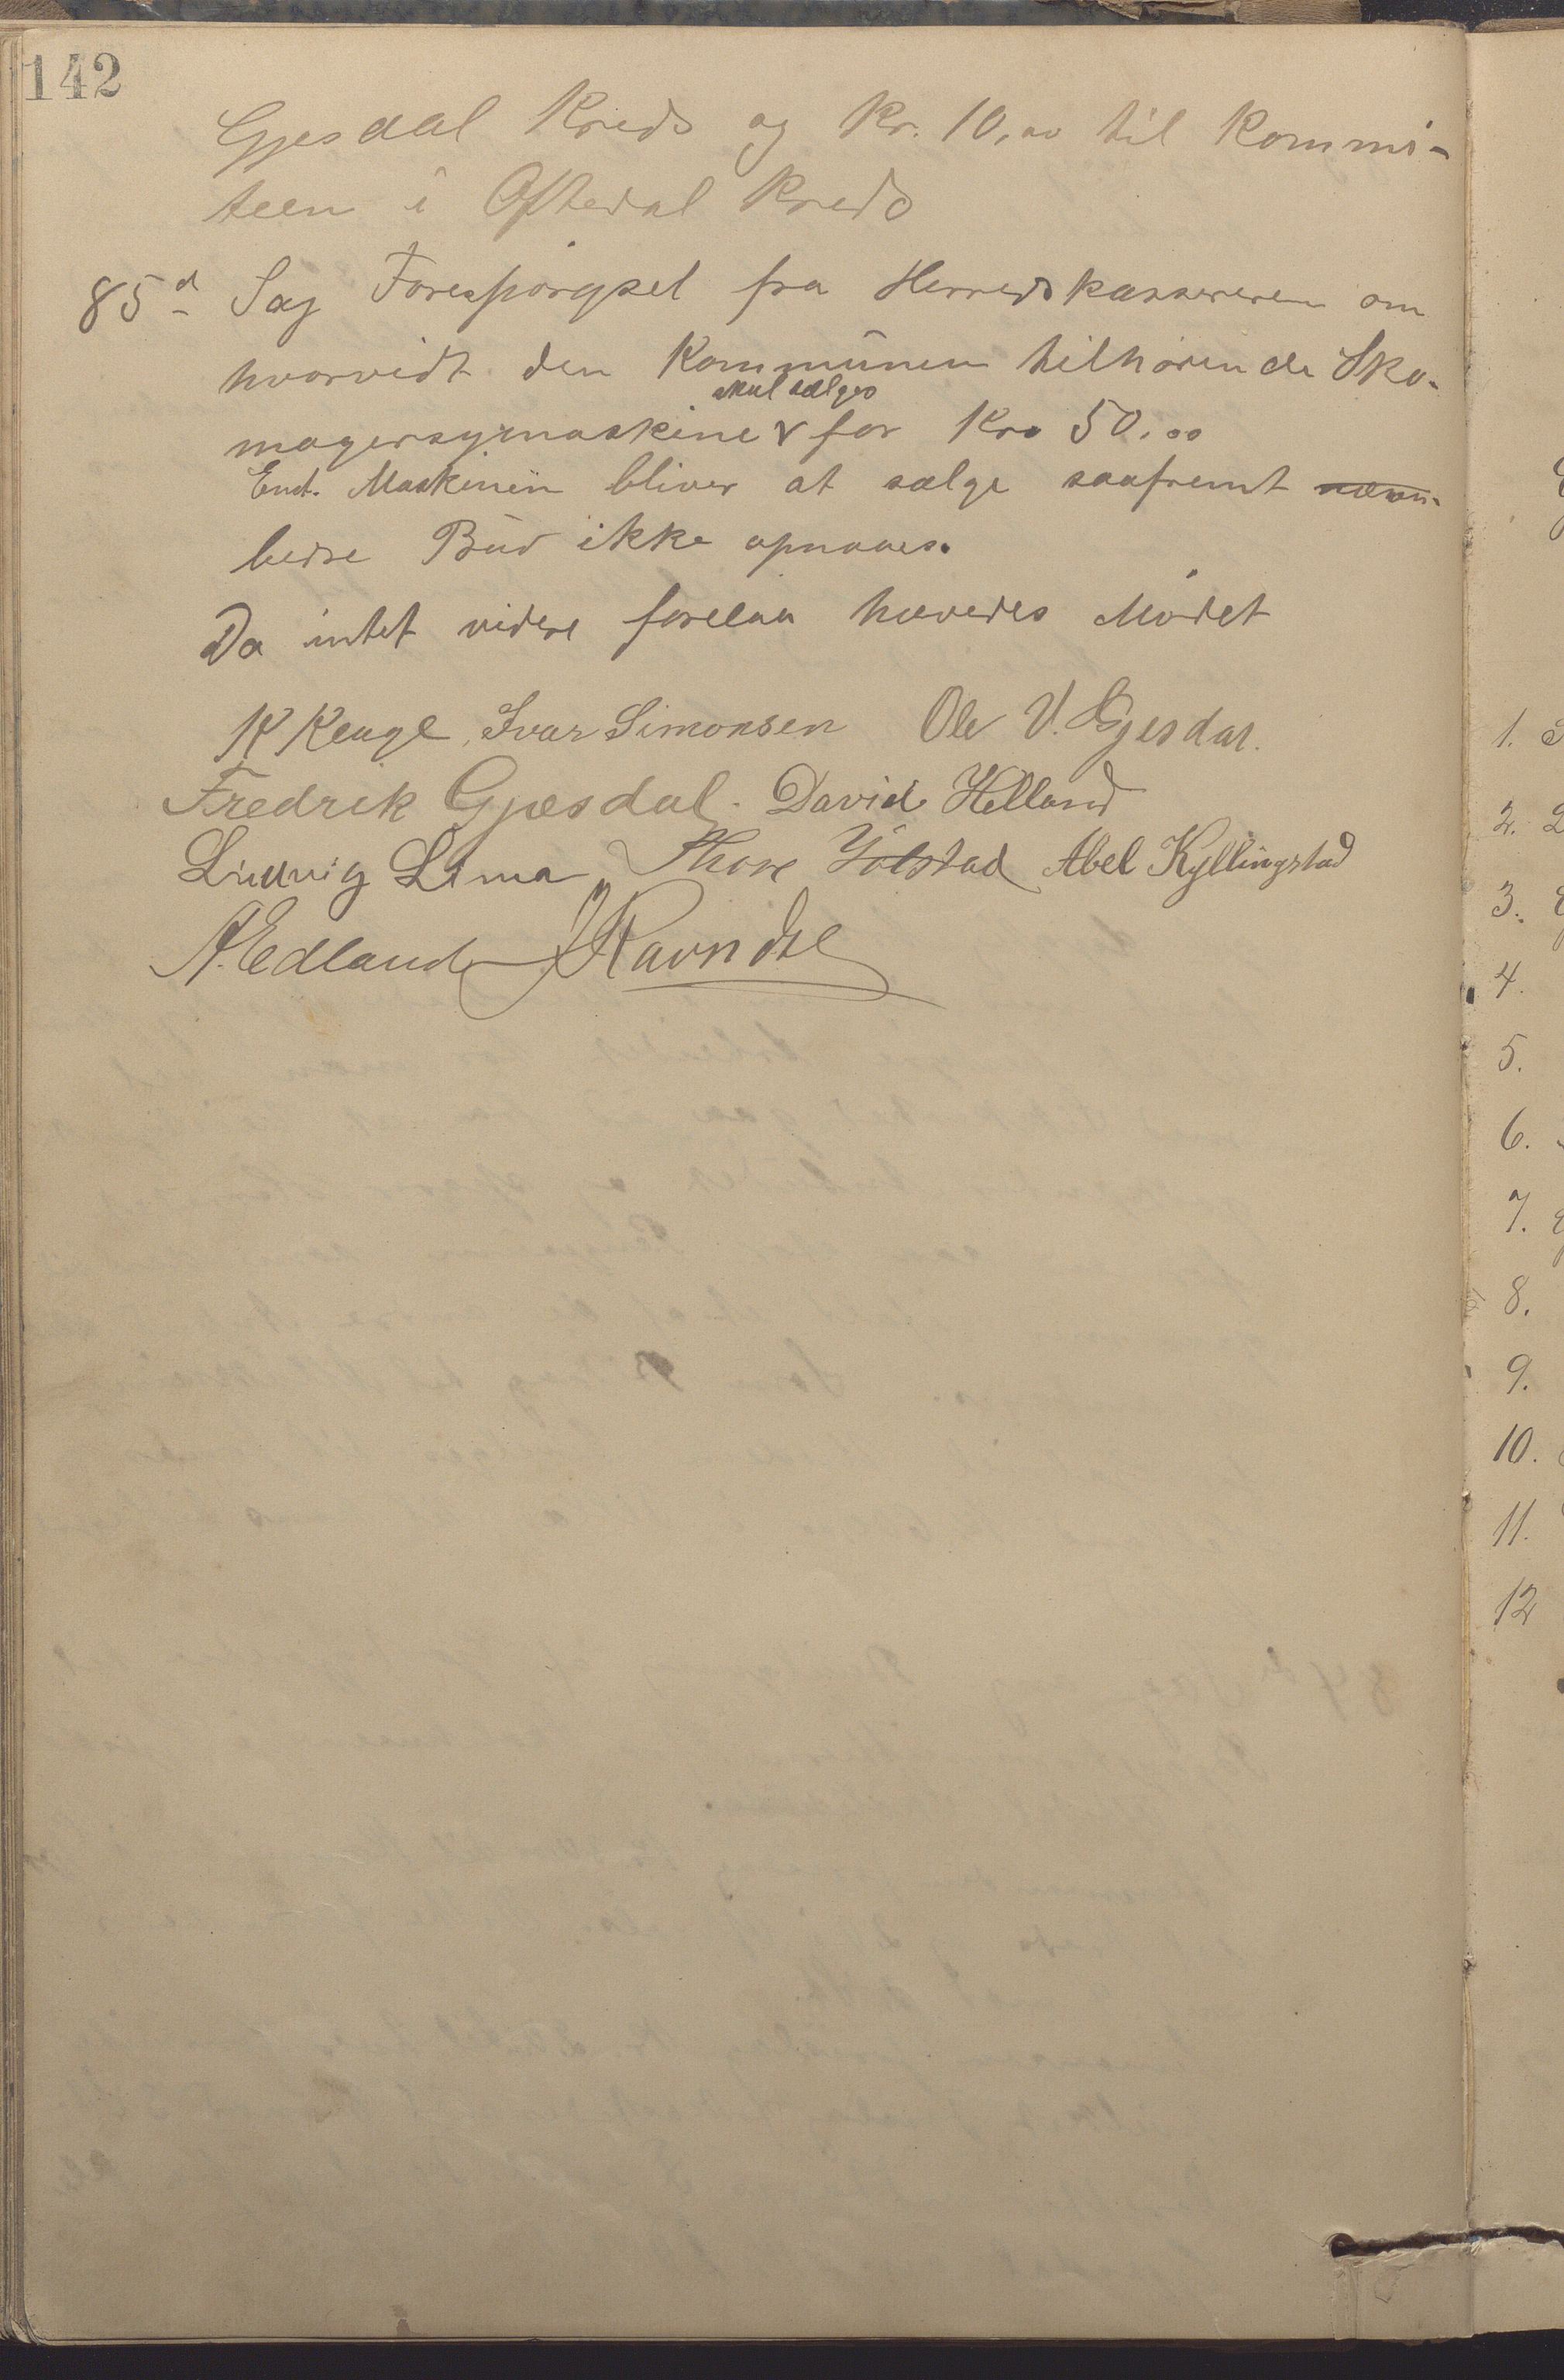 142
Gjesdal Kreds og Kr. 10,00 til Kommi-
teen i Oftedal Kreds
85d Sag Forespørgsel fra Herredskassereren om
hvorvidt den Kommunen tilhørende Sko-
skal sælges
magersymaskine v for Kro 50.00
Enst. Maskinen bliver at sælge saafremt
bedre Bud ikke opnaaes.
Da intet videre forelaa hævedes Mødet
K Kluge, Ivar Simonsen Ole V. Gjesdal.
Fredrik Gjesdal. David Helland
Ludvig Lima Thore Ydstad Abel Kyllingstad
A. Edland J Ravndal
1.
2.
3.
4.
5.
6.
7.
8.
9.
10.
11.
12